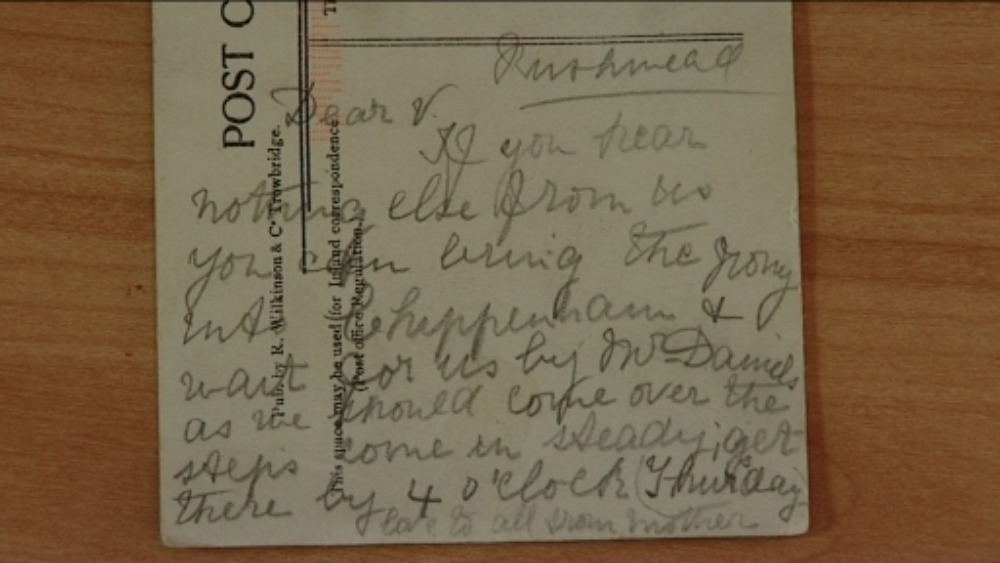 POST C
Pub. by R. Wilkinson & Co Trowbridge.
This space may be used for Inland correspondence
(Post office Regulation.)
Rushmead
Dear V.
If you hear
nothing else from us
you can bring the pony
into Chippenham &
wait for us by Mr Daniels
as we should come over the
steps come in steady, get
there by 4 o'clock (Thursday
love to all from mother